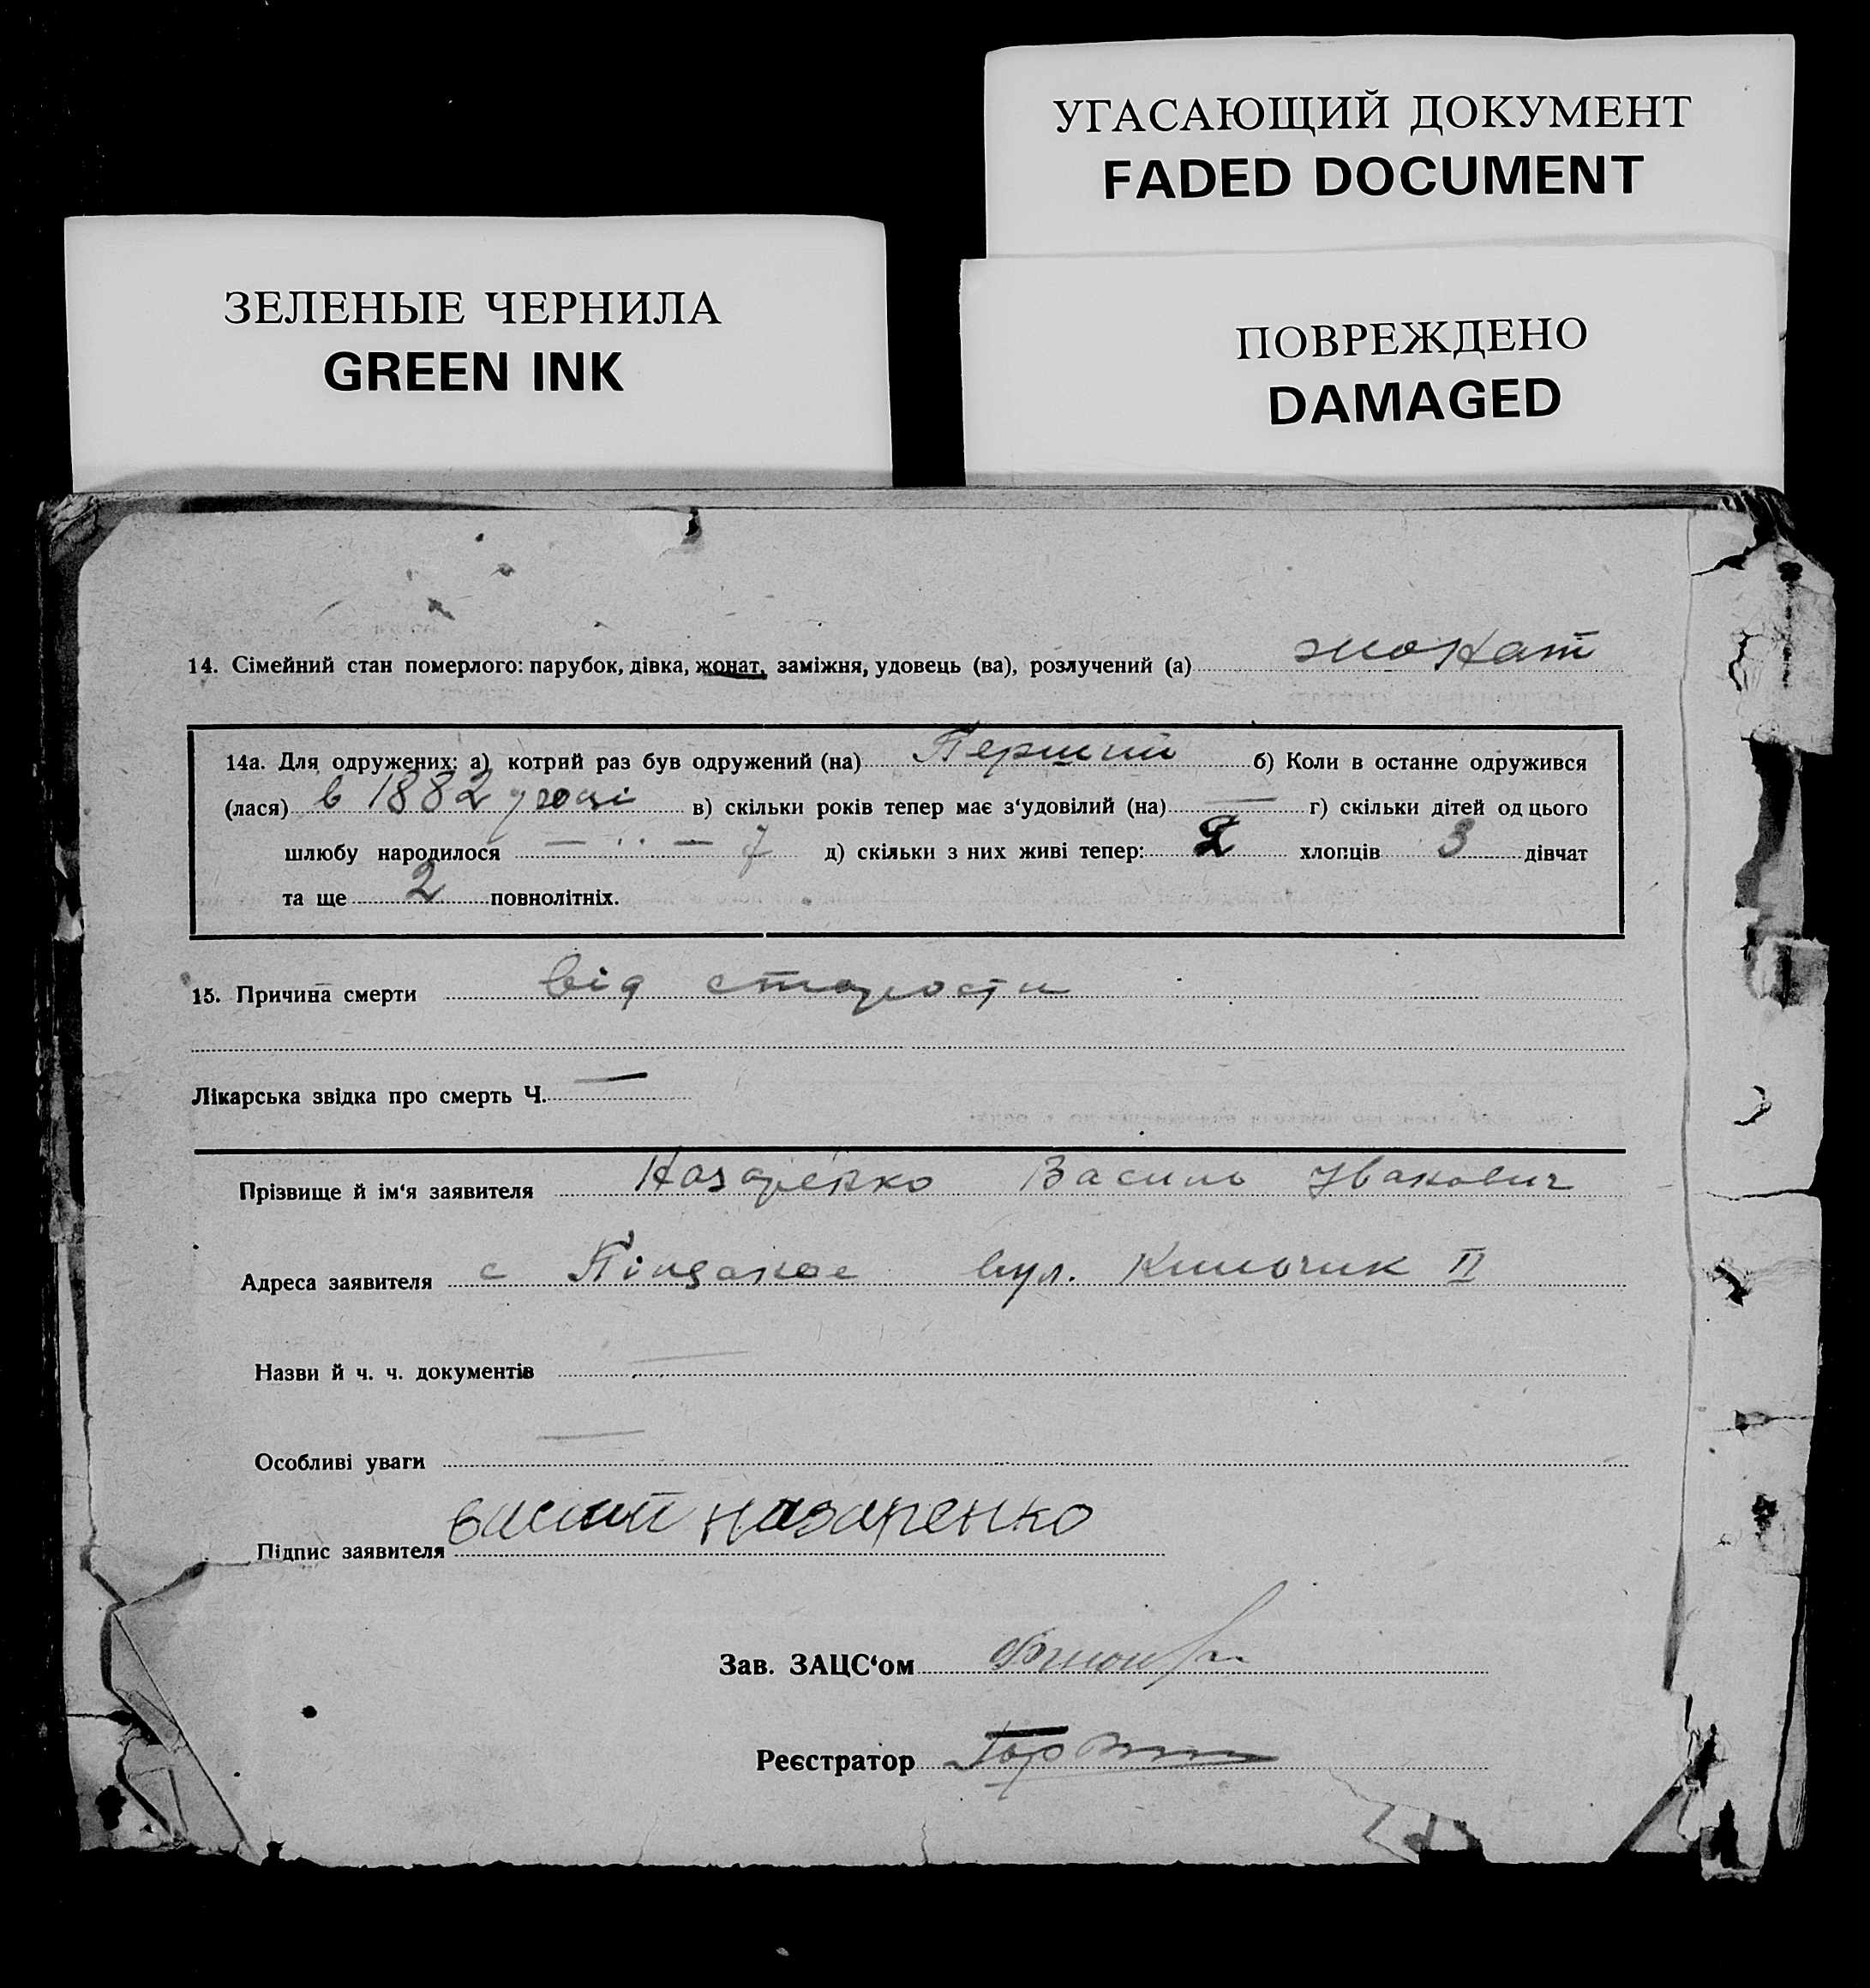 УГАСАЮЩИЙ ДОКУМЕНТ
FADED DOCUMENT
ЗЕЛЕНЫЕ ЧЕРНИЛА
GREEN INK
ПОВРЕЖДЕНО
DAMAGED
14. Сімейний стан померлого: парубок, дівка, жонат, заміжня, удовець (ва), розлучений (а) жонат
14а. Для одружених: а) котрий раз був одружений (на) Перший б) Коли в останнє одружився
(лася) в 1882 році в) скільки років тепер має з‘удовілий (на) — г) скільки дітей од цього
шлюбу народилося — ·· — 7 д) скільки з них живі тепер: 2 хлопців 3 дівчат
та ще 2 повнолітніх.
15. Причина смерти від старости
Лікарська звідка про смерть Ч. —
Прізвище й ім‘я заявителя Назаренко Василь Іванович
Адреса заявителя с вул. II
Назви й ч. ч. документів —
Особливі уваги —
Підпис заявителя Назаренко
Зав. ЗАЦС‘ом
Реєстратор